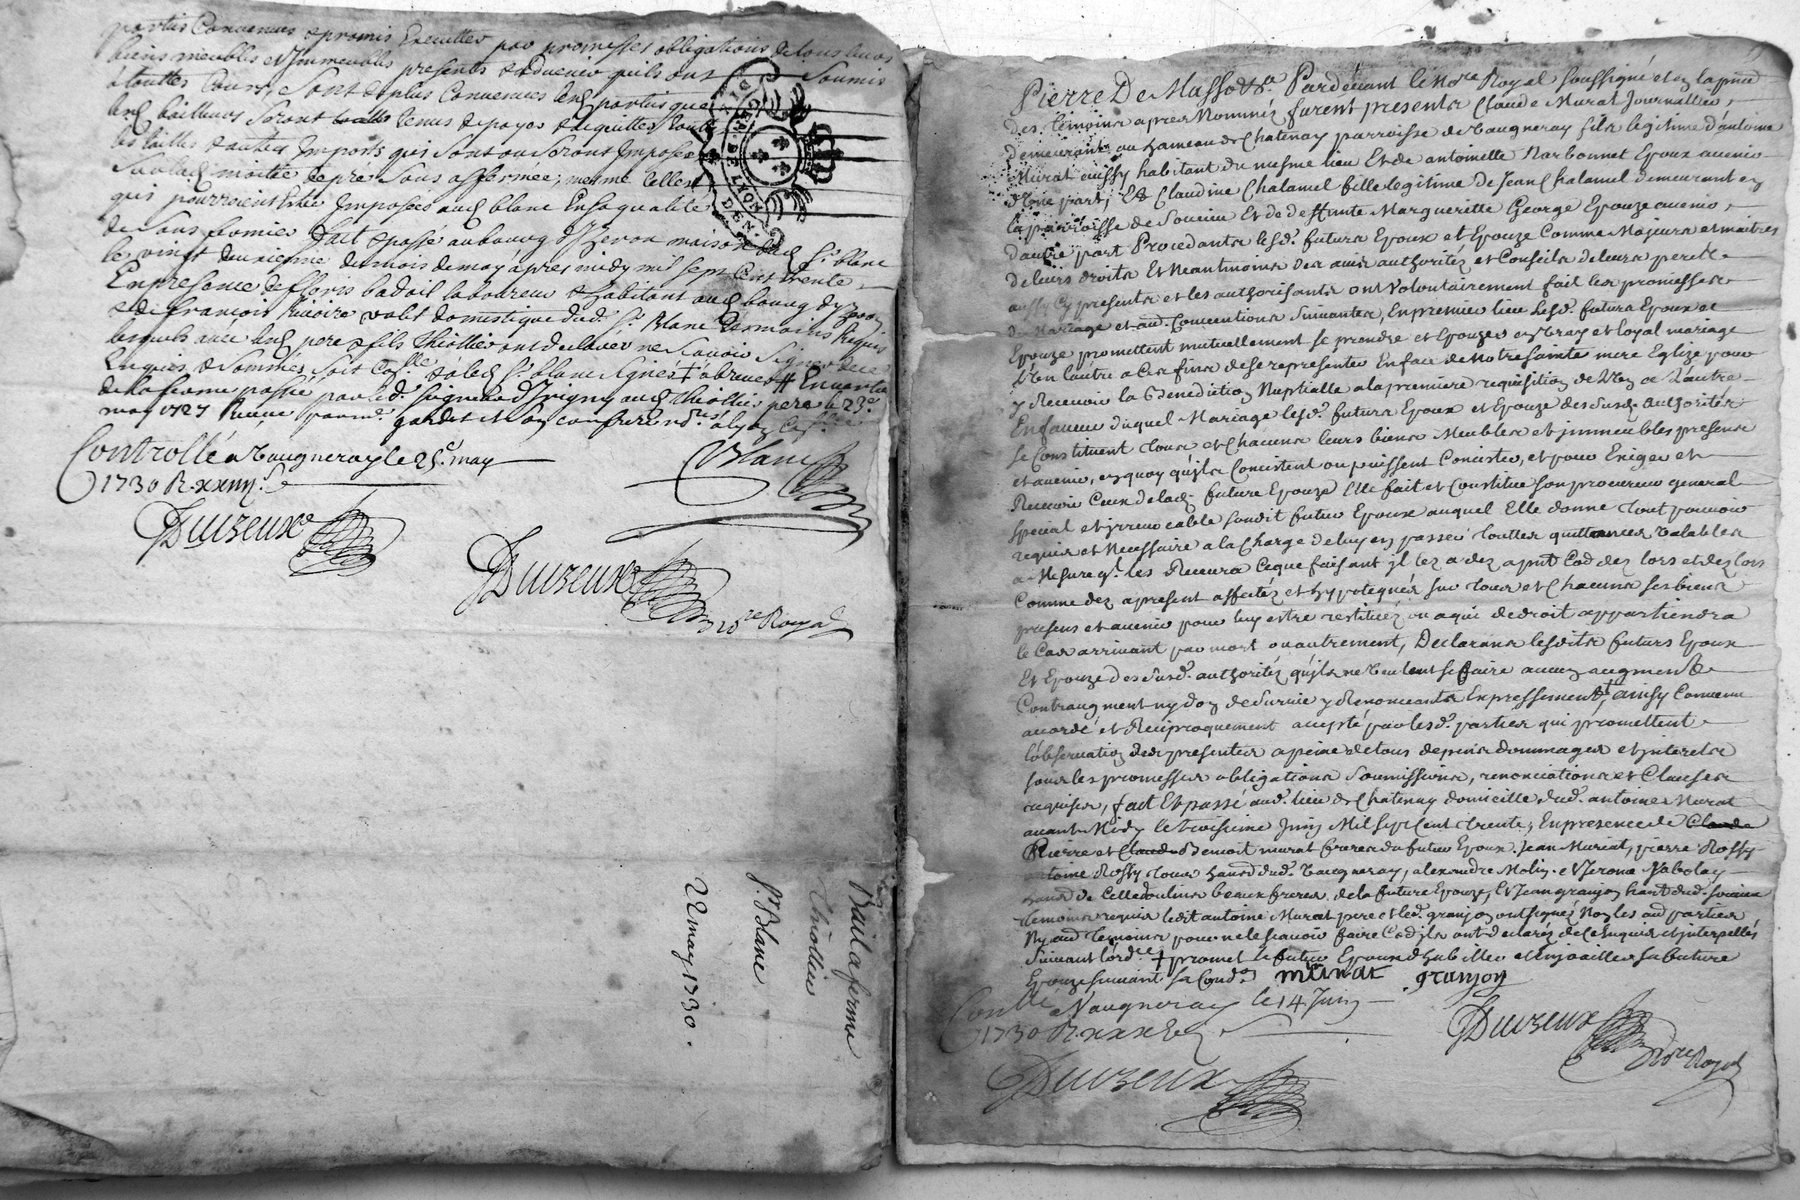 parties Convenues & promis Executter par promesses obligations de tous leurs
biens meubles et Immeubles presents & advenir quils ont Soumis
a touttes Cours, Sont de plus Convenues lesd. parties que
lesd. bailleurs seront tenus de payer & acquitter toutes
les tailles & autres Imposts qui sont ou seront Imposés
Sur lad. moitié de pré sous affermée, mesme celles
qui pourroient Estre Imposées aud. blanc En sa qualité
de sous fermier fait & passé au bourg d'Yzeron maison dud. Sr. blanc
le vingt deuxieme du mois de may apres midy mil sept Cent trente
En presence de badoil laboureur & habitant aud. bourg d'yzeron
et de francois valet domestique dud. Sr. Blanc temoins Requis
lesquels avec lesd. pere & fils thiollier ont declarer ne scavoir signer de ce
Enquis & Sommés & led. Sr. blanc signé
de la ferme passée par led. seigneur d'Yvigny aud. thiollier pere le 23e.
may 1727 Reçue par me. gardet et son confrere nores. a lyon
Controllé a Vaugneray le 25e. may
1730 R. xxiiijs.
Blanc
Duvzeux
Duvzeux
nore Royal
GEN. DE LYON
Bail a ferme
thiollier
Sr. Blanc
22 may 1730.
Pierre De Masso &a. Pardevant le Nore Royal soussigné et en la pnce
des temoins apres Nommés furent presents Claude Murat Journallier,
demeurant au hameau de Chatenay parroisse de Vaugneray fils legitime d'antoine
Murat aussy habitant du mesme lieu Et de antoinette Narbonnet Epoux avenir
d'une part, Et Claudine Chalamel fille legitime de Jean Chalamel demeurant en
la parroisse de Soucieu Et de deffunte Margueritte George Epouze avenir,
d'autre part Procedants lesd. futurs Epoux et Epouze Comme Majeurs et maitres
de leurs droits Et Neantmoins des avis authorités et Conseils de leurs peres
aussy Cy presents et les authorisants ont volontairement fait les promesses
de Marriage et aud. Conventions suivantes, En premier lieu Lesd. futurs Epoux et
Epouze promettent mutuellement se prendre et Epouzer en vray et loyal mariage
L'un lautre a Ces fins de se representer En face de Notre sainte mere Eglize pour
y Recevoir la Benediction Nuptialle a la premiere requisition de L'un ou L'autre
En faveur duquel Mariage lesd. futurs Epoux et Epouze des susd. authorités
se Constituent tous et Chacuns leurs biens Meubles et immeubles presents
et avenir, en quoy qu'ils Concistent ou puissent Concister, et pour Exiger et
Recevoir Ceux de lad. future Epouze Elle fait et Constitue son procureur general
special et irrevocable sondit futur Epoux auquel Elle donne tout pouvoir
requis et Necessaire a la Charge de luy en passer touttes quittances valables
a Mesure qu. les Recevra Ce que faisant il les a dez a pnt Co dez lors et dez lors
Comme dez a present affectés et hypotequés sur tous et Chacuns ses biens
presens et avenir pour luy estre restitués ou a qui de droit appartiendra
le Cas arrivant par mort ou autrement, Declarans lesdits futurs Epoux
Et Epouze des susd. authorités qu'ils ne veulent se faire aucun augment
Contraugment ny don de survie y Renonceants Expressement, ainsy Convenu
accordé et Reciproquement accepté par lesd. parties qui promettent
l'observation des presentes a peine de tous depens dommages et interets
sous les promesses obligations soumissions, renonciations et Clauses
requises, fait Et passé aud. lieu de Chatenay domicille dud. antoine Murat
avant Midy le troisieme Juin Mil sept Cent trente, En presence de Claude
Pierre et Claude Benoit murat freres du futur Epoux Jean Murat, pierre Rossy
antoine Rossy tous dud. Vaugneray, alexandre Molin et Jerome
beaux freres de la future Epouze, Et Jean granjon hant dud. Soucieu
temoins requis ledit antoine Murat pere et led. granjon ont signés Non les aud. parties
Ny aud. temoins pour ne le scavoir faire Co d. ils ont declarés de Ce Enquis et interpellés
suivant l'ord.ce + promet le futur Epoux d'habiller et Enjoailler sa future
Epouze suivant sa Condon. murat granjon
Contlle a Vaugneray le 14 Juin
1730 R.
Duvzeux
Nore Royal
Duvzeux